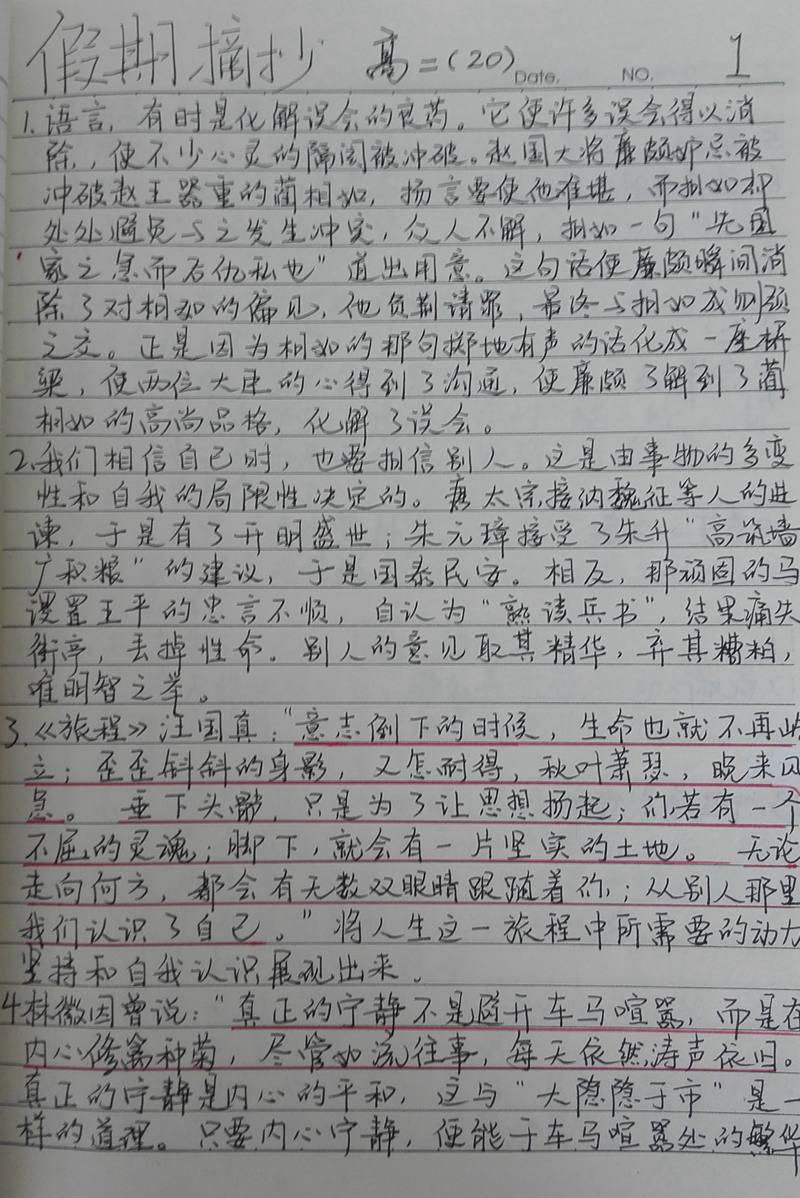 假期摘抄 高二(20) Date. NO. 1
1.语言,有时是化解误会的良药。它使许多误会得以消
除,使不少心灵的隔阂被冲破。赵国大将廉颇妒忌被
冲破赵王器重的蔺相如,扬言要使他难堪,而相如却
处处避免与之发生冲突,众人不解,相如一句“先国
家之急而后仇私也”道出用意。这句话使廉颇瞬间消
除了对相如的偏见,他负荆请罪,最终与相如成刎颈
之交。正是因为相如的那句掷地有声的话化成一座桥
梁,使两位大臣的心得到了沟通,使廉颇了解到了蔺
相如的高尚品格,化解了误会。
2.我们相信自己时,也要相信别人。这是由事物的多变
性和自我的局限性决定的。唐太宗接纳魏征等人的进
谏,于是有了开明盛世;朱元璋接受了朱升“高筑墙
广积粮”的建议,于是国泰民安。相反,那顽固的马
谡置王平的忠言不顺,自认为“熟读兵书”,结果痛失
街亭,丢掉性命。别人的意见取其精华,弃其糟粕,
唯明智之举。
3.《旅程》汪国真:“意志倒下的时候,生命也就不再屹
立;歪歪斜斜的身影,又怎耐得,秋叶萧瑟,晚来风
急。 垂下头颅,只是为了让思想扬起;你若有一个
不屈的灵魂;脚下,就会有一片坚实的土地。 无论
走向何方,都会有无数双眼睛跟随着你;从别人那里
我们认识了自己。”将人生这一旅程中所需要的动力
坚持和自我认识展现出来.
4.林徽因曾说:“真正的宁静不是避开车马喧嚣,而是在
内心修篱种菊,尽管如流往事,每天依然涛声依旧。
真正的宁静是内心的平和,这与“大隐隐于市”是一
样的道理。只要内心宁静,便能于车马喧嚣处的繁华